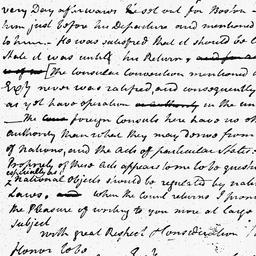 very Day afterwards set out for Boston
him just before his Departure and mentioned
to him. He was satisfied that it should be l
State it was until his Return,
The consular convention mentioned
never was ratified, and consequently
as yet have operation in the un
The foreign Consuls here have no oth
authority than what they may derive from
of nations, and the Acts of particular States.
Propriety of these Acts appears to me to be questi
especially as
national Objects should be regulated by natio
Laws. when the court returns I prom
the Pleasure of writing to you more at large o
Subject
with great Respect & Consideration
Honor to be